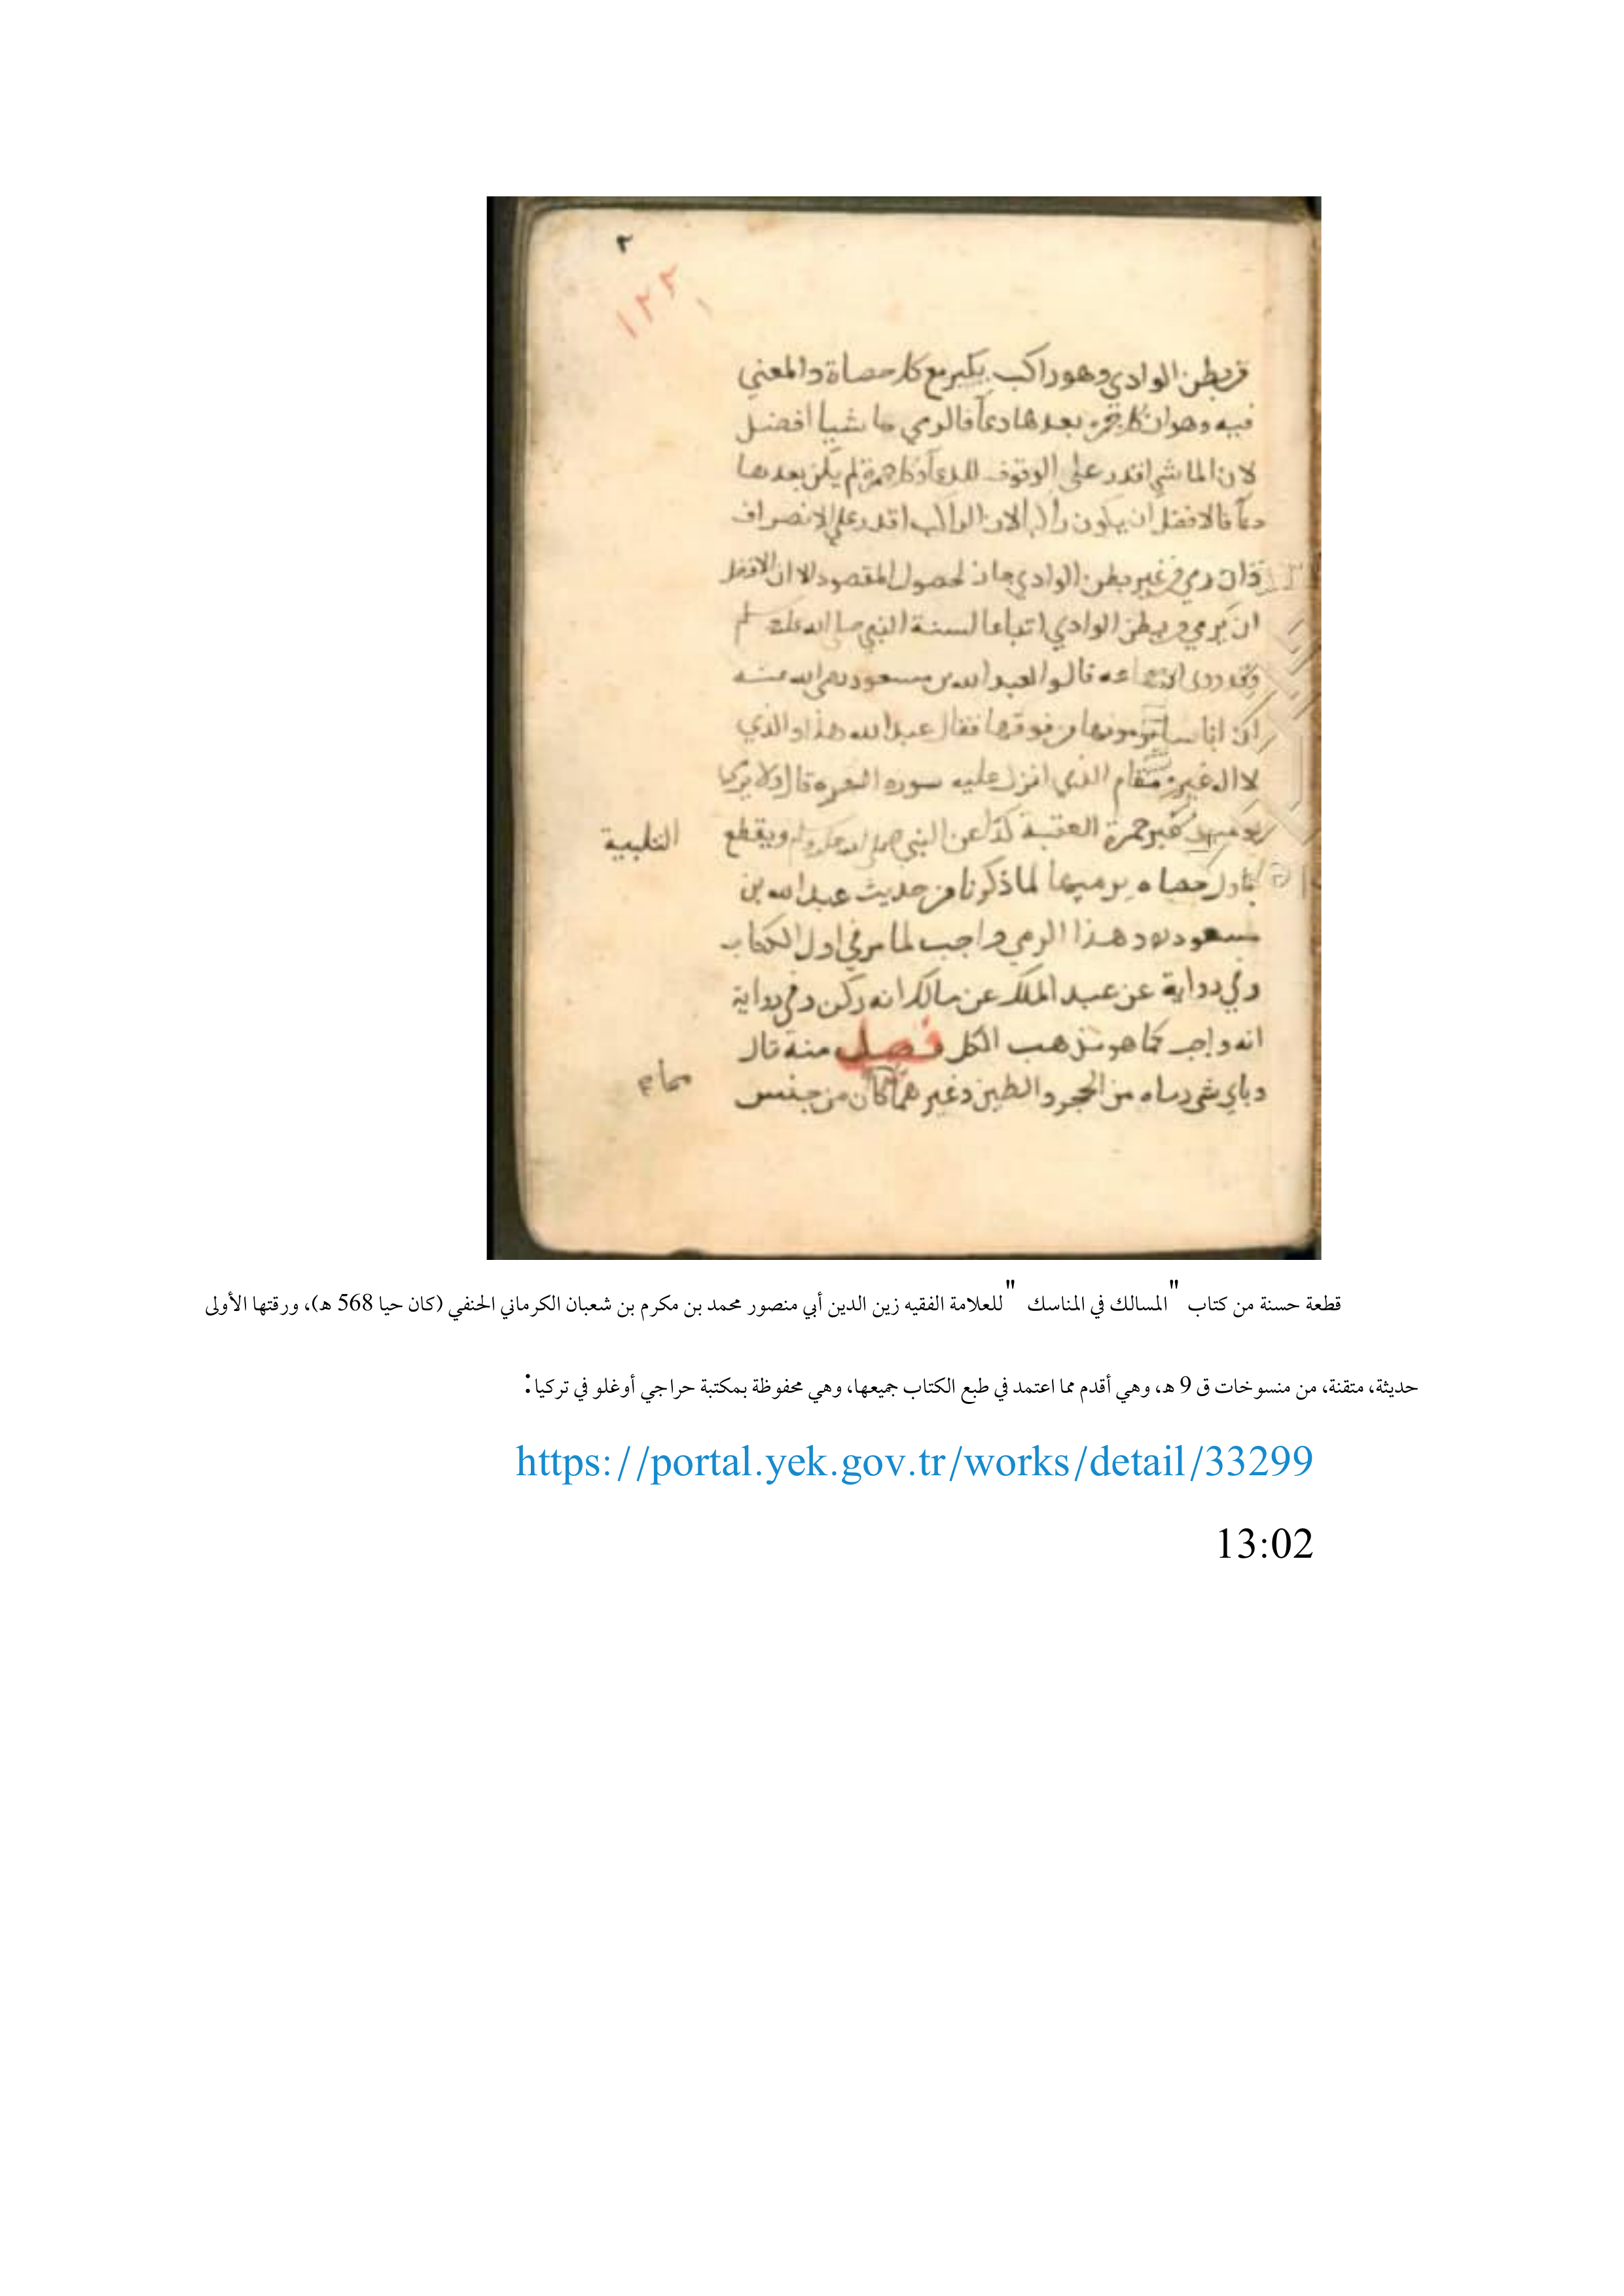 ٢
١٢٢
من بطن الوادي وهو راكب يكبر مع كل حصاة والمعني
فيه وهو ان كل جمرة بعدها دعآ فالرمي ماشيا افضل
لان الماشي اقدر على الوقوف للدعآ وكل جمرة لم يكن بعدها
دعآ فالافضل ان يكون راكبا لان الراكب اقدر على الانصراف
وان رمي من غير بطن الوادي جاز لحصول المقصود الا ان الافضل
ان يرمي من بطن الوادي اتباعا لسنة النبي صلى الله عليه وسلم
وقد روى قالوا لعبد الله بن مسعود رضى الله عنه
ان اناسا يرمونها من فوقها فقال عبد الله هذا والذي
لا اله غيره مقام الذي انزل عليه سورة البقرة قال ولا يرمي
يوميذ غير جمرة العقبة كذا عن النبي صلى الله عليه وسلم ويقطع
التلبية
باول حصاه يرميها لما ذكرنا من حديث عبد الله بن
مسعود وهذا الرمي واجب لما مر في اول الكتاب
وفي رواية عن عبد الملك عن مالك انه ركن وفي رواية
انه واجب كما هو مذهب الكل فصل منه قال
وباي شى رماه من الحجر والطين وغيرهما كان من جنس
قطعة حسنة من كتاب "المسالك في المناسك" للعلامة الفقيه زين الدين أبي منصور محمد بن مكرم بن شعبان الكرماني الحنفي (كان حيا 568 هـ)، ورقتها الأولى
حديثة، متقنة، من منسوخات ق 9 هـ، وهي أقدم مما اعتمد في طبع الكتاب جميعها، وهي محفوظة بمكتبة حراجي أوغلو في تركيا:
https://portal.yek.gov.tr/works/detail/33299
13:02